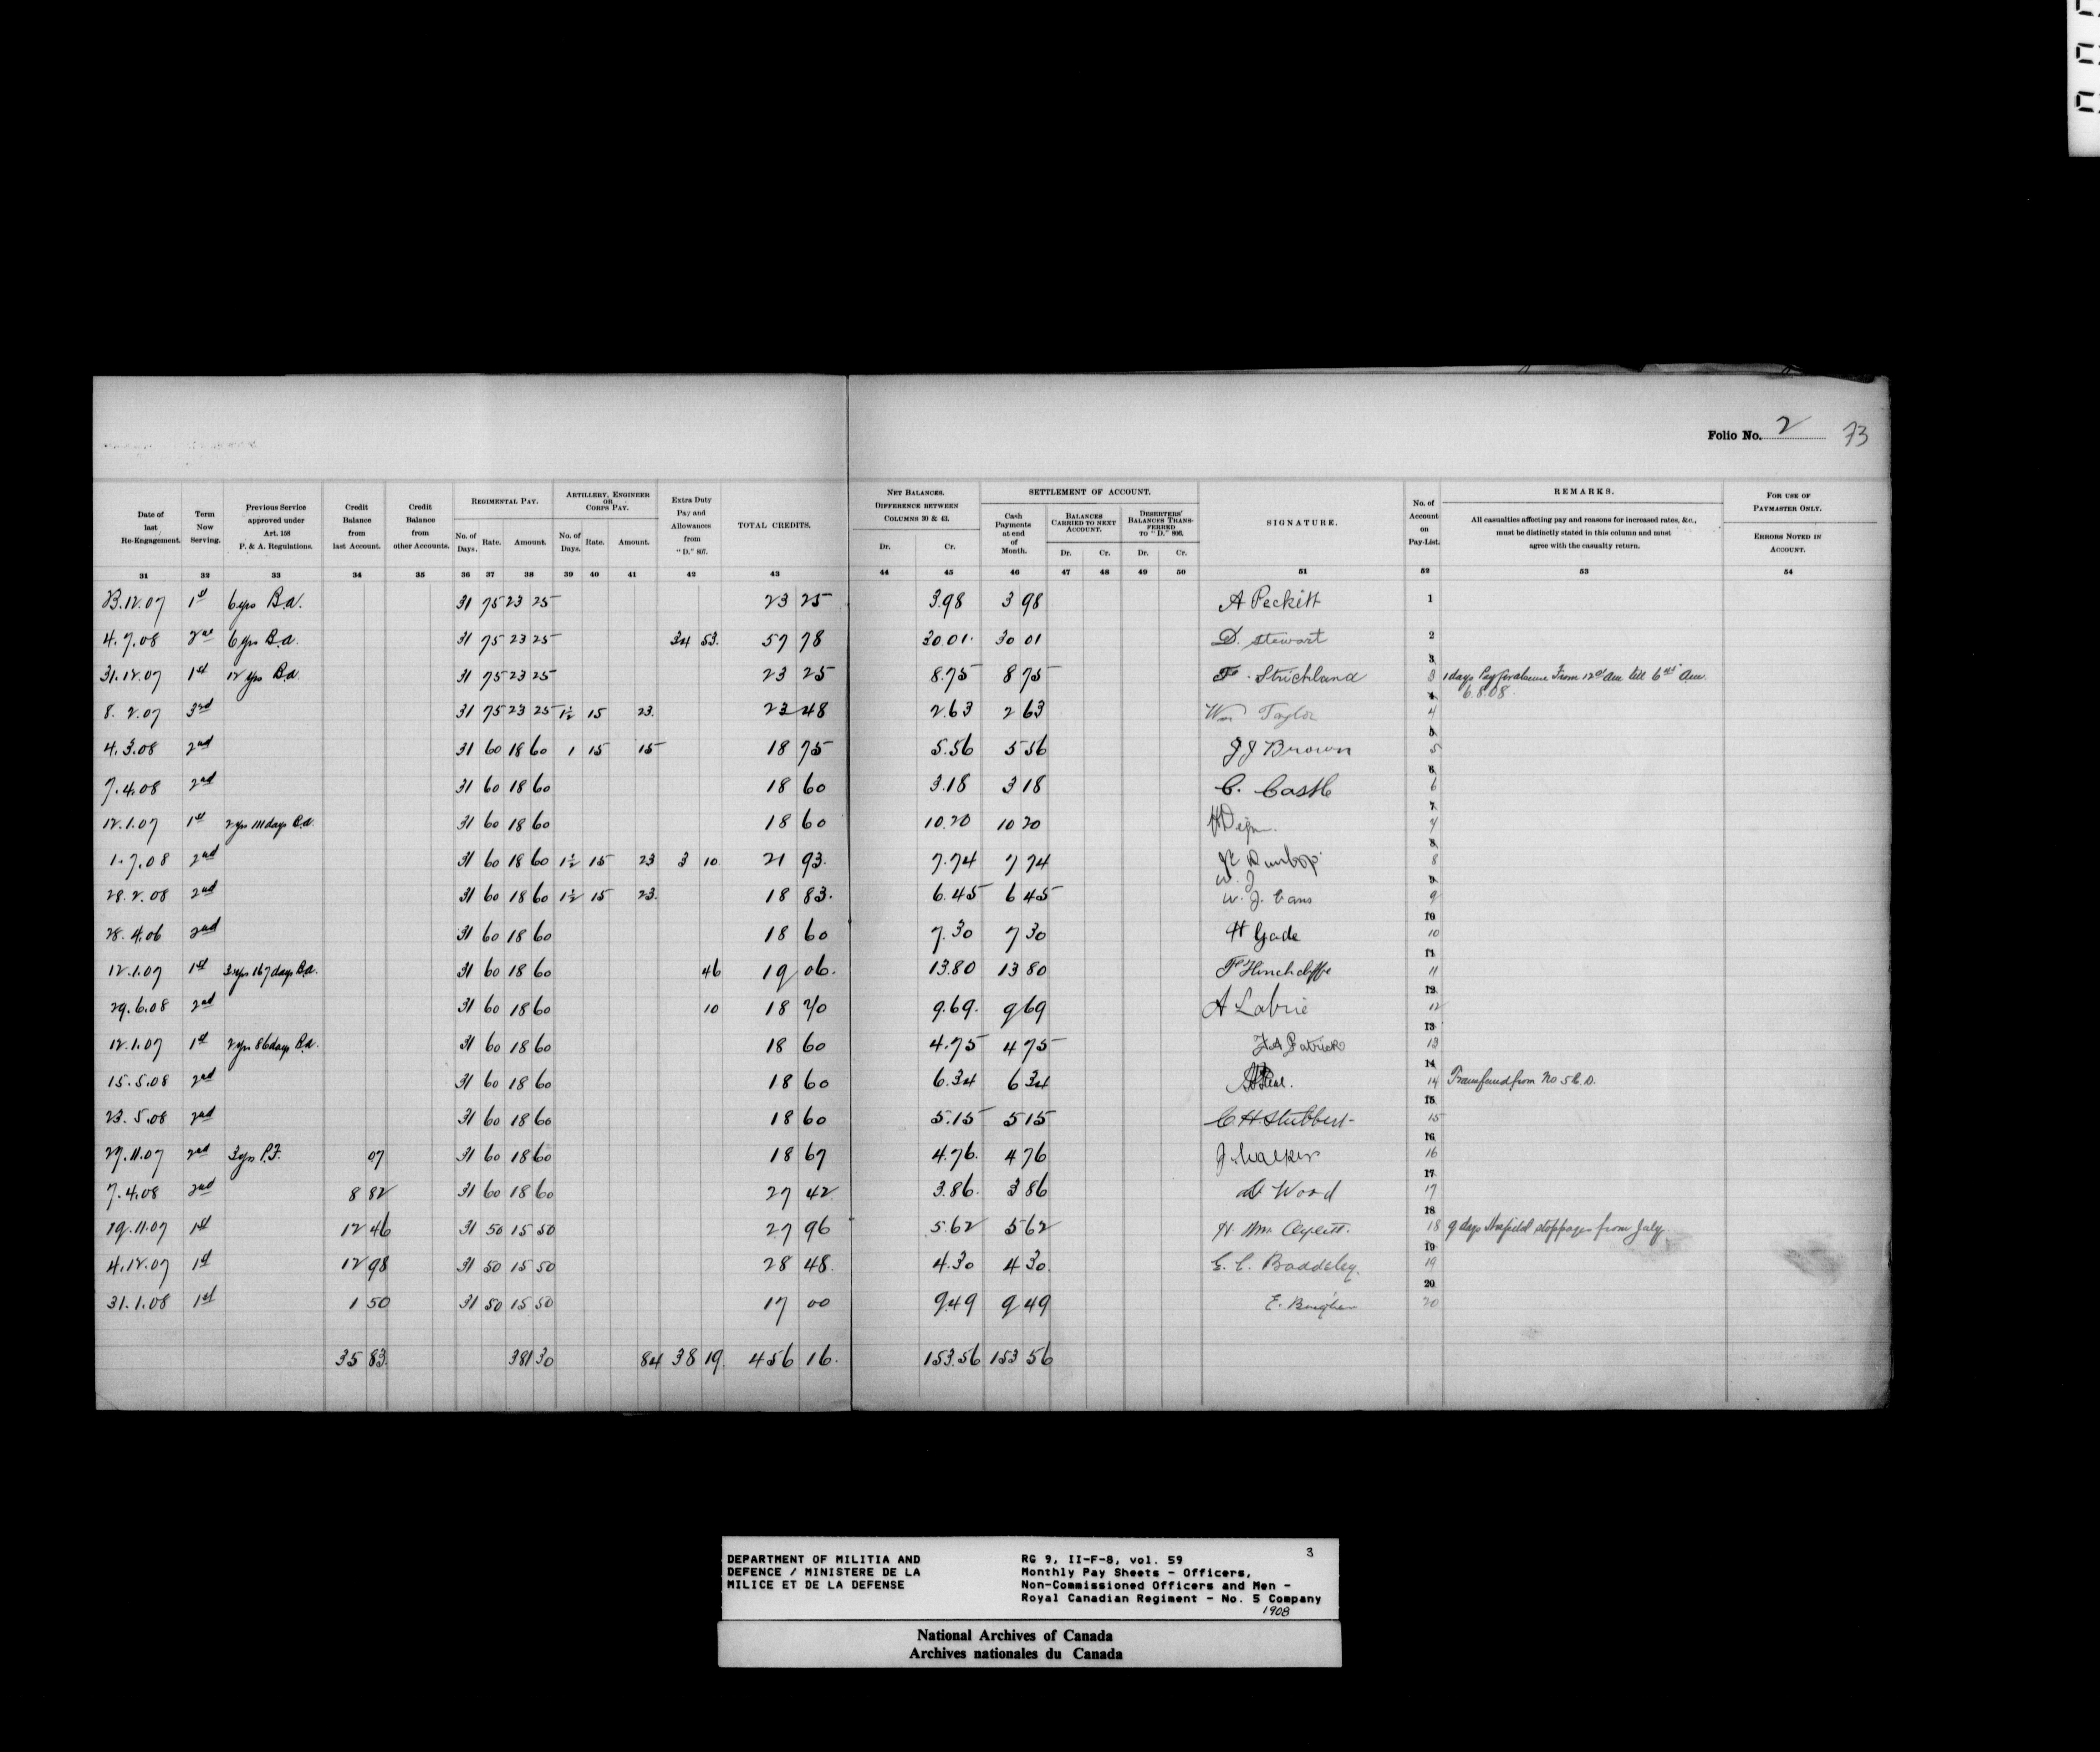 Folio No. 2 73
Date of last Re-Engagement. Term Now Serving. Previous Service approved under Art. 158 P. & A. Regulations. Credit Balance from last Account. Credit Balance from other Accounts. REGIMENTAL PAY. No. of Days. Rate. Amount. ARTILLERY, ENGINEER OR CORPS PAY. No. of Days. Rate. Amount. Extra Duty Pay and Allowances from "D." 807. TOTAL CREDITS. NET BALANCES. DIFFERENCE BETWEEN COLUMNS 30 & 43. Dr. Cr. SETTLEMENT OF ACCOUNT. Cash Payments at end of Month. BALANCES CARRIED TO NEXT ACCOUNT. Dr. Cr. DESERTERS' BALANCES TRANSFERRED TO "D." 806. Dr. Cr. SIGNATURE. No. of Account on Pay-List. REMARKS. All casualties affecting pay and reasons for increased rates, &c., must be distinctly stated in this column and must agree with the casualty return. FOR USE OF PAYMASTER ONLY. ERRORS NOTED IN ACCOUNT.
31 32 33 34 35 36 37 38 39 40 41 42 43 44 45 46 47 48 49 50 51 52 53 54
23.12.07 1st 6 yrs B.a. 31 75 23 25 23 25 3.98 3 98 A Peckitt 1
4.7.08 2nd 6 yrs B.a. 31 75 23 25 34 53. 57 78 30 01. 30 01 D. Stewart 2
31.12.07 1st 12 yrs B.a. 31 75 23 25 23 25 8.75 8 75 F. Strichland 3 3 1 days Pay 6th
8. 2.07 3rd 31 75 23 25 1½ 15 23. 23 48 2.63 2 63 Wm Taylor 4 4 6.8.08.
4.3.08 2nd 31 60 18 60 1 15 15 18 75 5.56 5 56 J J Brown 5 5
7.4.08 2nd 31 60 18 60 18 60 3.18 3 18 C. Castle 6 6
12.1.07 1st 2 yrs 111 days B.a. 31 60 18 60 18 60 10.20 10 20 7 7
1.7.08 2nd 31 60 18 60 1½ 15 23 3 10 21 93. 7.74 7 74 Dunlop 8 8
28.2.08 2nd 31 60 18 60 1½ 15 23. 18 83. 6.45 6 45 W. J. W. J. Evans 9 9
28.4.06 2nd 31 60 18 60 18 60 7.30 7 30 H Gade 10 10
12.1.07 1st 3 yrs 167 days B.a. 31 60 18 60 46 19 06. 13.80 13 80 F Hinchcliffe 11 11
29.6.08 2nd 31 60 18 60 10 18 70 9.69. 9 69 A Labrie 12 12
12.1.07 1st 2 yrs 86 days B.a. 31 60 18 60 18 60 4.75 4 75 Patrick 13 13
15.5.08 2nd 31 60 18 60 18 60 6.34 6 34 14 14 Transferred from No 5 C.D.
23.5.08 2nd 31 60 18 60 18 60 5.15 5 15 C. H. Stubbert 15 15
27.11.07 2nd 3 yrs P.F. 07 31 60 18 60 18 67 4.76. 4 76 J. Walker 16 16
7.4.08 2nd 8 82 31 60 18 60 27 42 3.86. 3 86 Wood 17 17
19.11.07 1st 12 46 31 50 15 50 27 96 5.62 5 62 H. Wm. 18 18 9 days stoppages from July
4.12.07 1st 12 98 31 50 15 50 28 48. 4.30 4 30. E. C. Baddeley. 19 19
31.1.08 1st 1 50 31 50 15 50 17 00 9.49 9 49 E. 20 20
35 83. 381 30 84 38 19. 456 16. 153.56 153 56
DEPARTMENT OF MILITIA AND
DEFENCE / MINISTERE DE LA
MILICE ET DE LA DEFENSE
RG 9, II-F-8, vol. 59 3
Monthly Pay Sheets - Officers,
Non-Commissioned Officers and Men -
Royal Canadian Regiment - No. 5 Company
1908
National Archives of Canada
Archives nationales du Canada